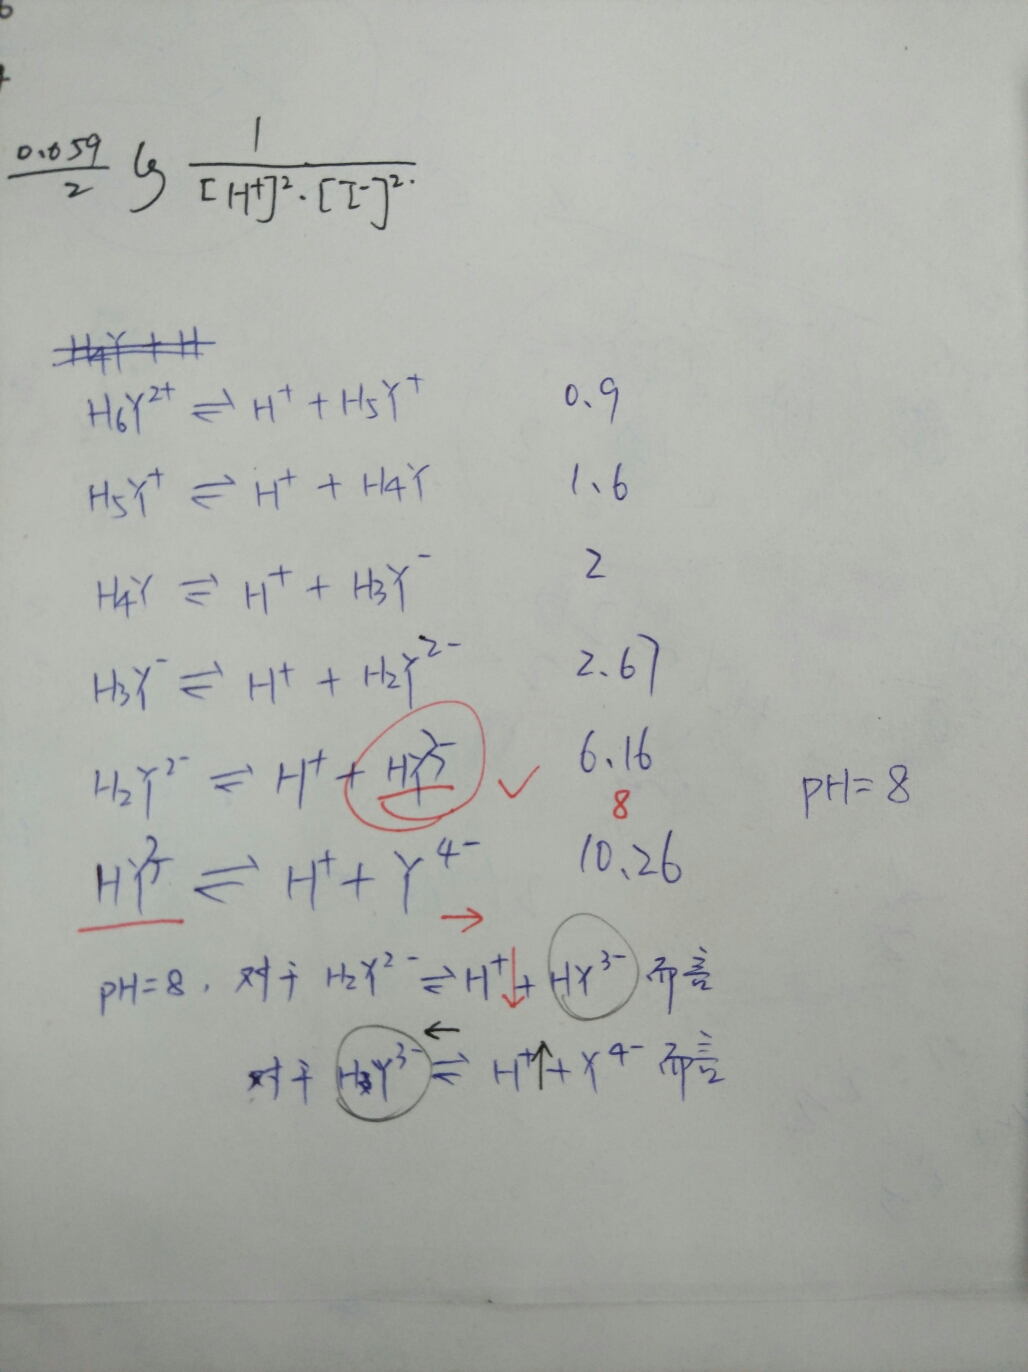 0.059/2 lg 1/[H⁺]²·[I⁻]²·
H₄Y + H
H₆Y²⁺ ⇌ H⁺ + H₅Y⁺ 0.9
H₅Y⁺ ⇌ H⁺ + H₄Y 1.6
H₄Y ⇌ H⁺ + H₃Y⁻ 2
H₃Y⁻ ⇌ H⁺ + H₂Y²⁻ 2.67
H₂Y²⁻ ⇌ H⁺ + HY³⁻ ✓ 6.16
8
pH=8
HY³⁻ ⇌ H⁺ + Y⁴⁻ 10.26
→
pH=8, 对于 H₂Y²⁻ ⇌ H⁺↓ + HY³⁻ 而言
←
对于 HY³⁻ ⇌ H⁺↑ + Y⁴⁻ 而言